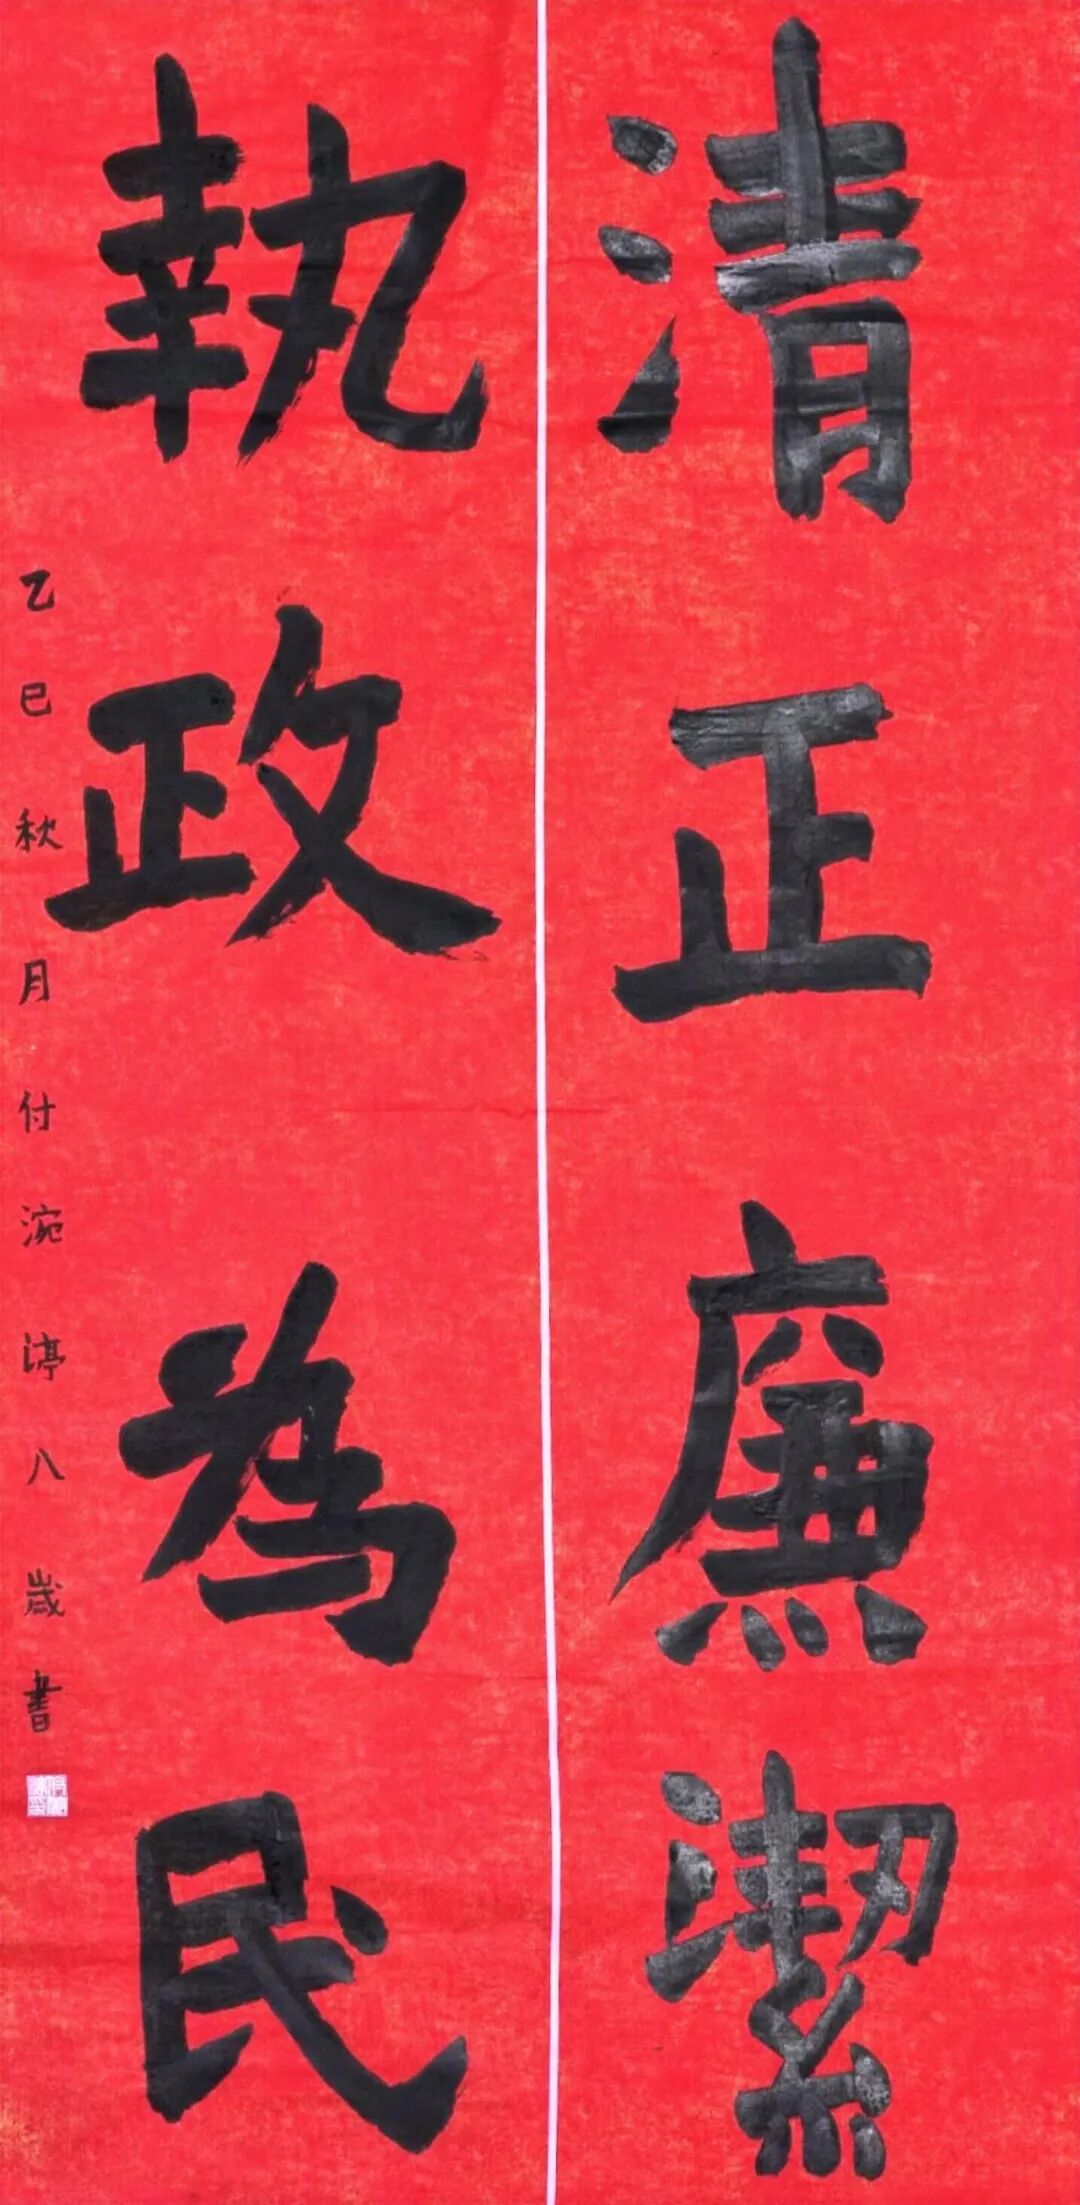 清正廉潔
執政為民
乙巳秋月付涴渟八歲書